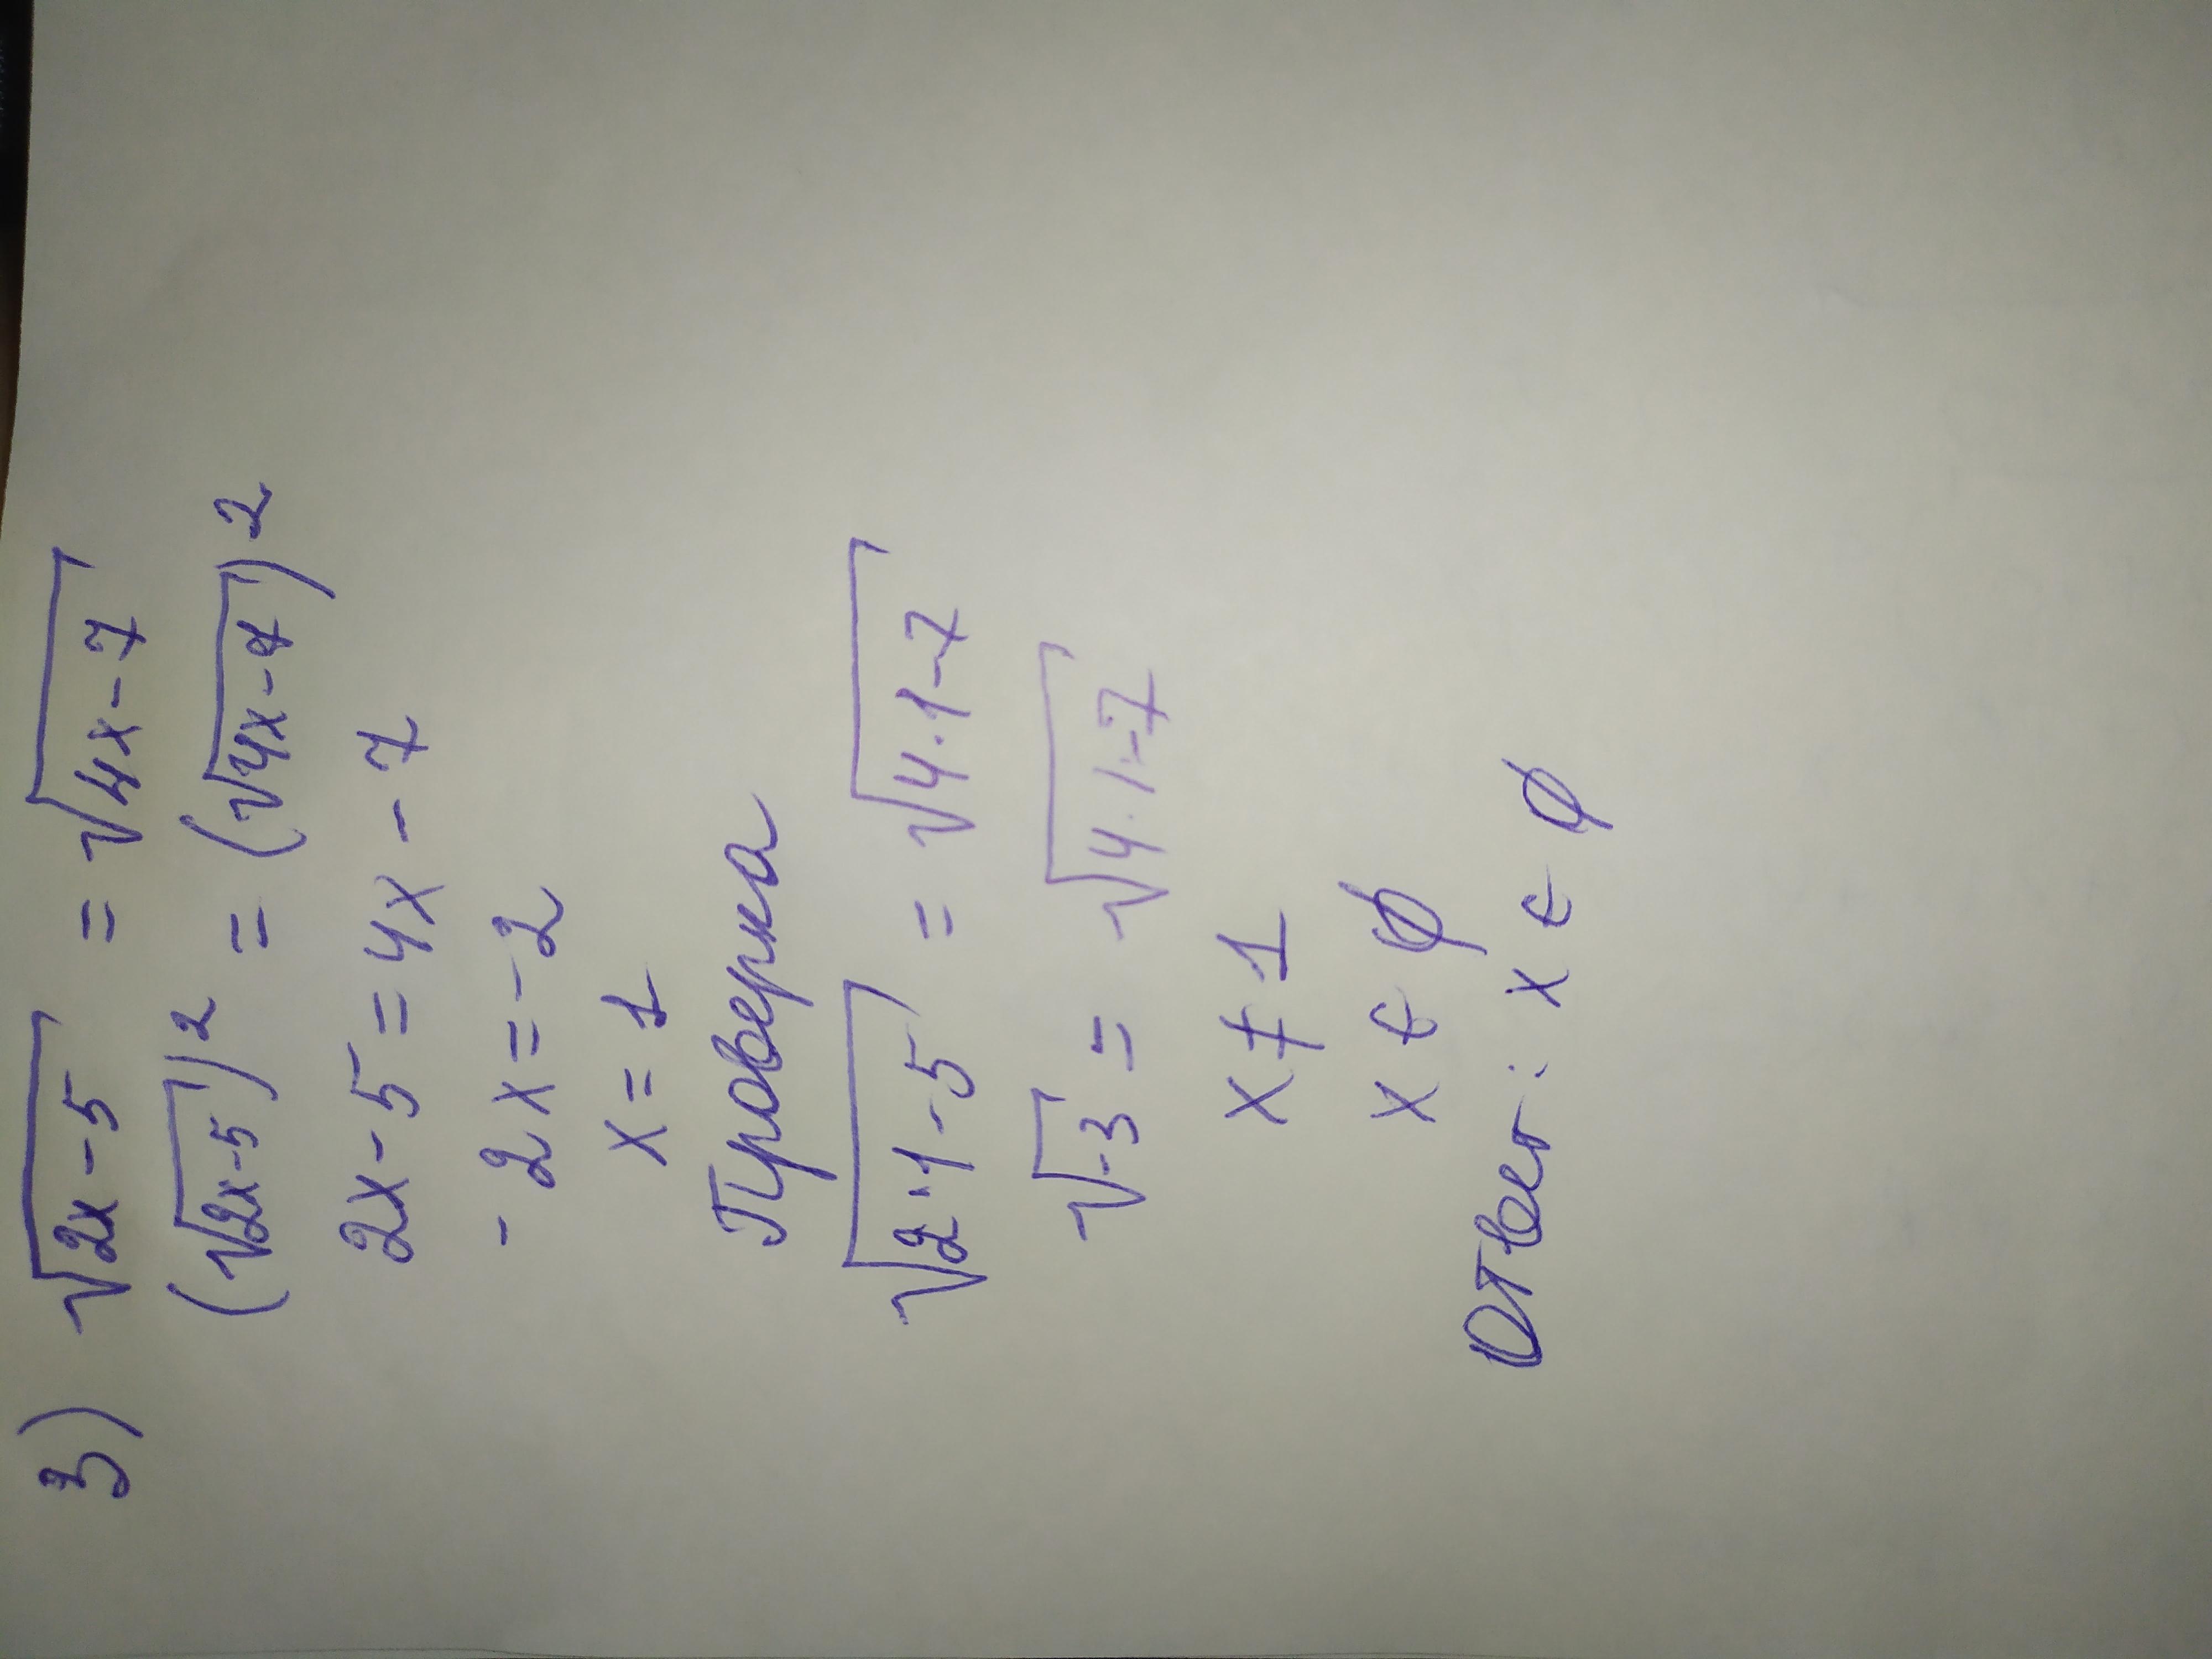 3) √2x-5 = √4x-7
(√2x-5)² = (√4x-7)²
2x-5=4x-7
-2x=-2
x=1
Проверка
√2·1-5 = √4·1-7
√-3 = √4·1-7
x≠1
x∈∅
Ответ: x∈∅